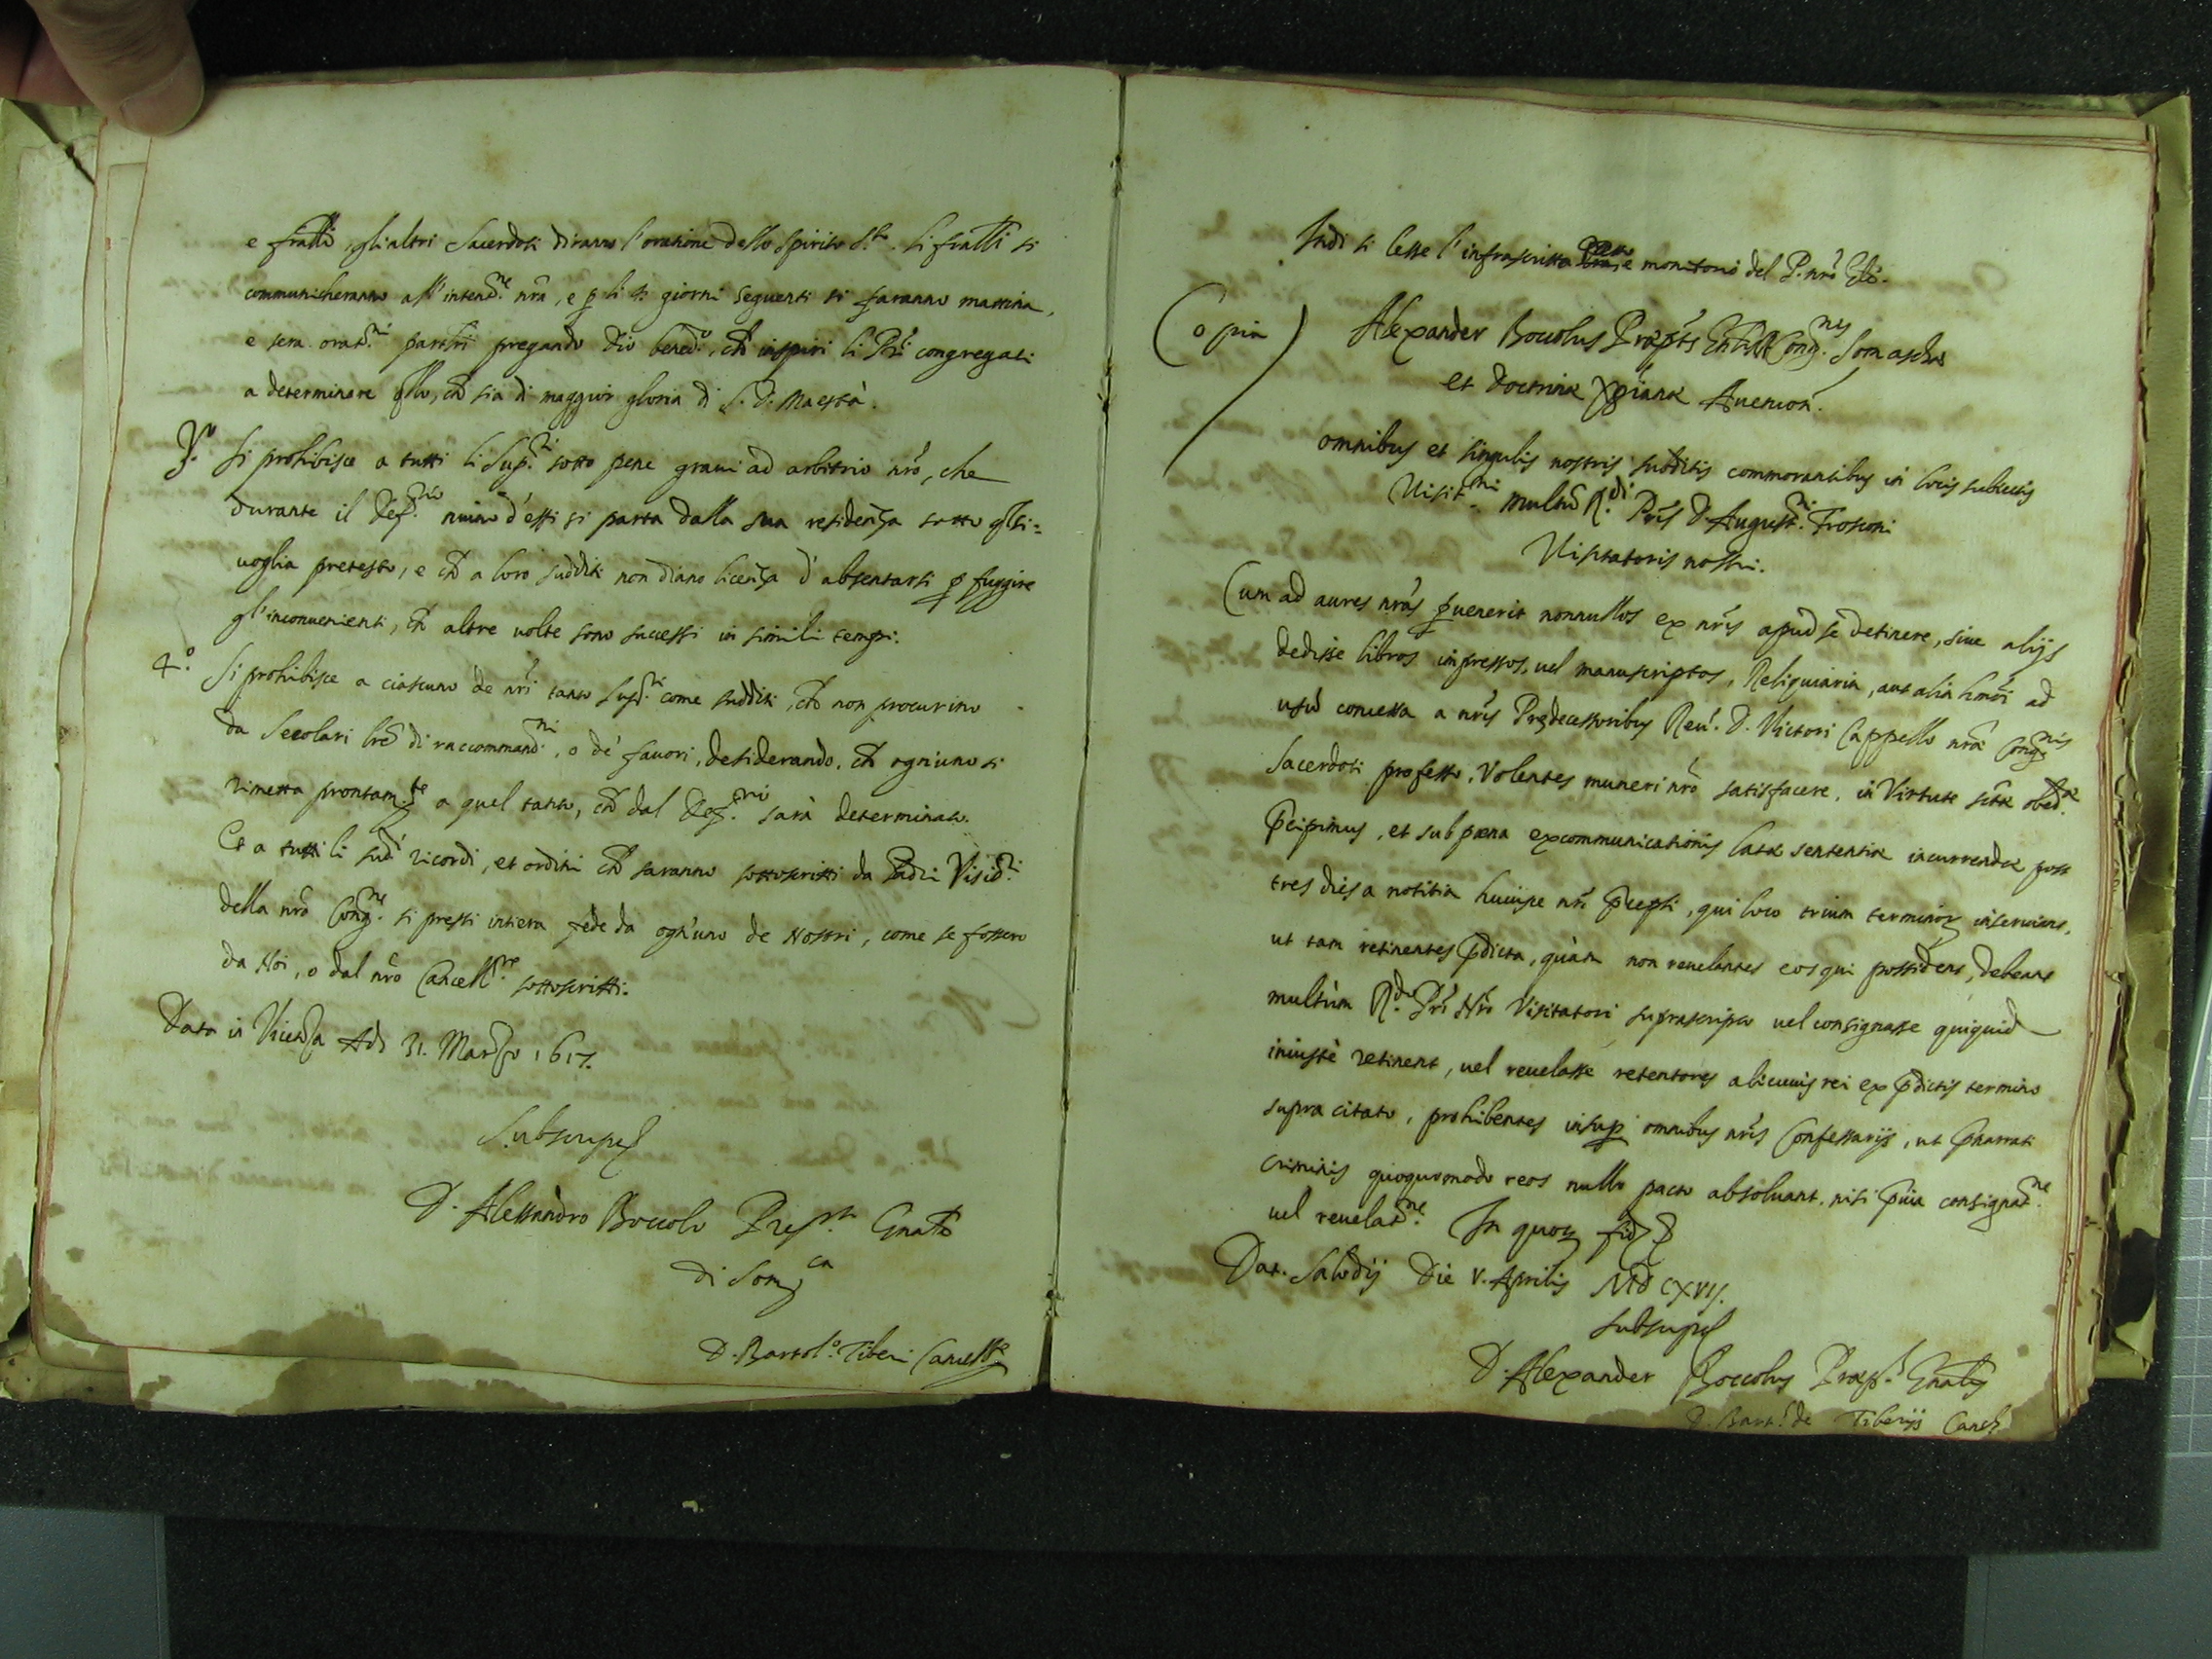 e fratelli, gli altri Sacerdoti diranno l'oratione dello Spirito S.to. li fratelli si
communicheranno all'intend.ne nra, e p li 3 giorni seguenti si faranno mattina,
e sera orat.ni partri pregando Dio bened.o, ch inspiri li Pri congregati
a determinare qllo, ch sia di maggior gloria di S. D. Maestà.
3.o Si prohibisce a tutti li Sup.ri sotto pene graui ad arbitrio nro, che
durante il Def.rio niuno d'essi si parta dalla sua residenza sotto qlsi=
uoglia pretesto, e ch a loro sudditi non diano licenza d'absentarsi p fuggire
gl'inconuenienti, ch altre uolte sono successi in simili tempi.
4.o Si prohibisce a ciascuno de nri tanto Sup.ri come sudditi, ch non procurino
da Secolari lre di raccommand.ni, o de' fauori, desiderando, ch ogniuno si
rimetta prontam.te a quel tanto, ch dal Def.rio sarà determinato.
Et a tutti li sud.i ricordi, et ordini ch saranno sottoscritti da Padri Visid.ri
della nra Cong.ne si presti intiera fede da ogn'uno de Nostri, come se fossero
da Noi, o dal nro Cancell.re sottoscritti.
Data in Vicenza Adi 31. Marzo 1617.
Subscript
D. Alessandro Boccolo Prep.to Gnale
di Som.ca
D. Bartol.o Tiberi Cancell.re
Indi si lesse l'infrascritto monitorio del P. nro Gle.
Copia
Alexander Boccolus Præpts Gnlis Cong.nis Somaschæ
et Doctrinæ Xpianæ Auenion.
omnibus et singulis nostris subditis commorantibus in locis subiectis
Visit.ni multu R.di Pris D. August.ni Froscon
Visitatoris nostri.
Cum ad aures nras puenerit nonnullos ex nris apud se detinere, siue alijs
dedisse libros impressos, uel manuscriptos, Reliquiaria, aut alia hmoi ad
usum concessa a nris Prędecessoribus Reu. D. Victori Cappello nræ Cong.nis
Sacerdoti professo, Volentes muneri nro satisfacere, in Virtute sctæ obed.æ
Pcipimus, et sub pœna excommunicationis latæ sententiæ incurrendæ post
tres dies a notitia huiusce nri Pcepti, qui loco trium terminor inseruiant,
ut tam retinentes pdicta, quàm non reuelantes eos qui possident, debeant
multùm R.do Pri Nro Visitatori suprascripto uel consignasse quiquid
iniustè retinent, uel reuelasse retentores alicuius rei ex pdictis termino
supra citato, prohibentes insup omnibus nris Confessarijs, ut pnarrati
criminis quoquomodo reos nullo pacto absoluant, nisi puia consignat.ne
uel reuelat.ne. In quor fid.
Dat. Salodij Die V. Aprilis MDCXVII.
Subscript
D. Alexander Boccolus Præp.s Gnalis
D. Bart. de Tiberijs Canc.